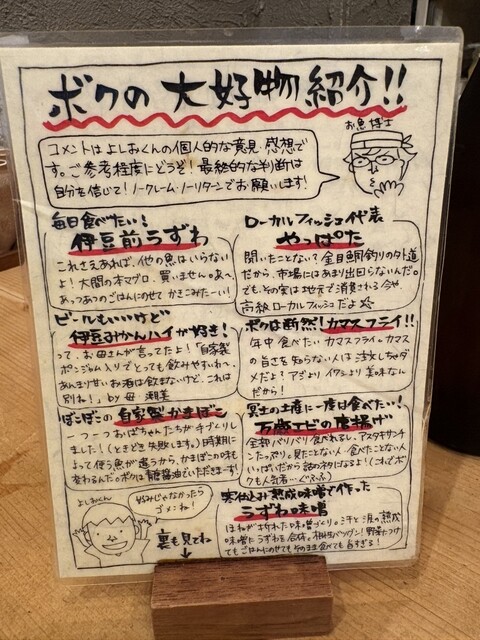 ボクの大好物紹介!!
お魚博士
コメントはよしおくんの個人的な意見・感想で
す。ご参考程度にどうぞ!最終的な判断は
自分を信じて!ノークレーム・ノーリターンでお願いします!
毎日食べたい!
伊豆前うずわ
これさえあれば、他の魚はいらない
よ!大間の本マグロ、買いません。あ〜、
あっつあつのごはんにのせて かきこみたーい!
ローカルフィッシュ代表
やっぱた
聞いたことない?金目鯛釣りの外道
だから、市場にはあまり出回らないんだ。
でも、その実は地元で消費される今や、
高級ローカルフィッシュだよ☆
ビールもいいけど
伊豆みかんハイが好き!
って、お母さんが言ってたよ!「自家製
ポンジャム入りでとっても飲みやすいわ〜。
あんまり甘いお酒は飲まないけど、これは
別ね!」by 母 潮美
ボクは断然!カマスフライ!!
年中食べたいカマスフライ。カマス
の旨さを知らない人は注文しちゃダ
メだよ!アジより イワシより 美味なん
だから!
ぼこぼこの自家製かまぼこ
一つ一つおばちゃんたちが手づくりし
ました!(ときどき失敗します。)時期に
よって使う魚が違うから、かまぼこの味も
変わるんだ。ボクは醤油でいただきまーす!
冥土の土産に一度は食べたい!
万歳エビの唐揚げ
全部バリバリ食べれるし、アスタキサンチ
ンたっぷり。見たことない人、食べたことない人
いっぱいだから話のネタになるよ!(これでボク
も人気者…ぐふふ)
実は仕込み熟成味噌で作った
うずわ味噌
ほねが折れた味噌づくり。三年と
味噌にうずわを合体。相性バツグン!野菜につけ
てもごはんにのせても そのまま食べても旨すぎる!
よしおくん
好みじゃなかったら
ゴメンね!
裏も見てね
↓